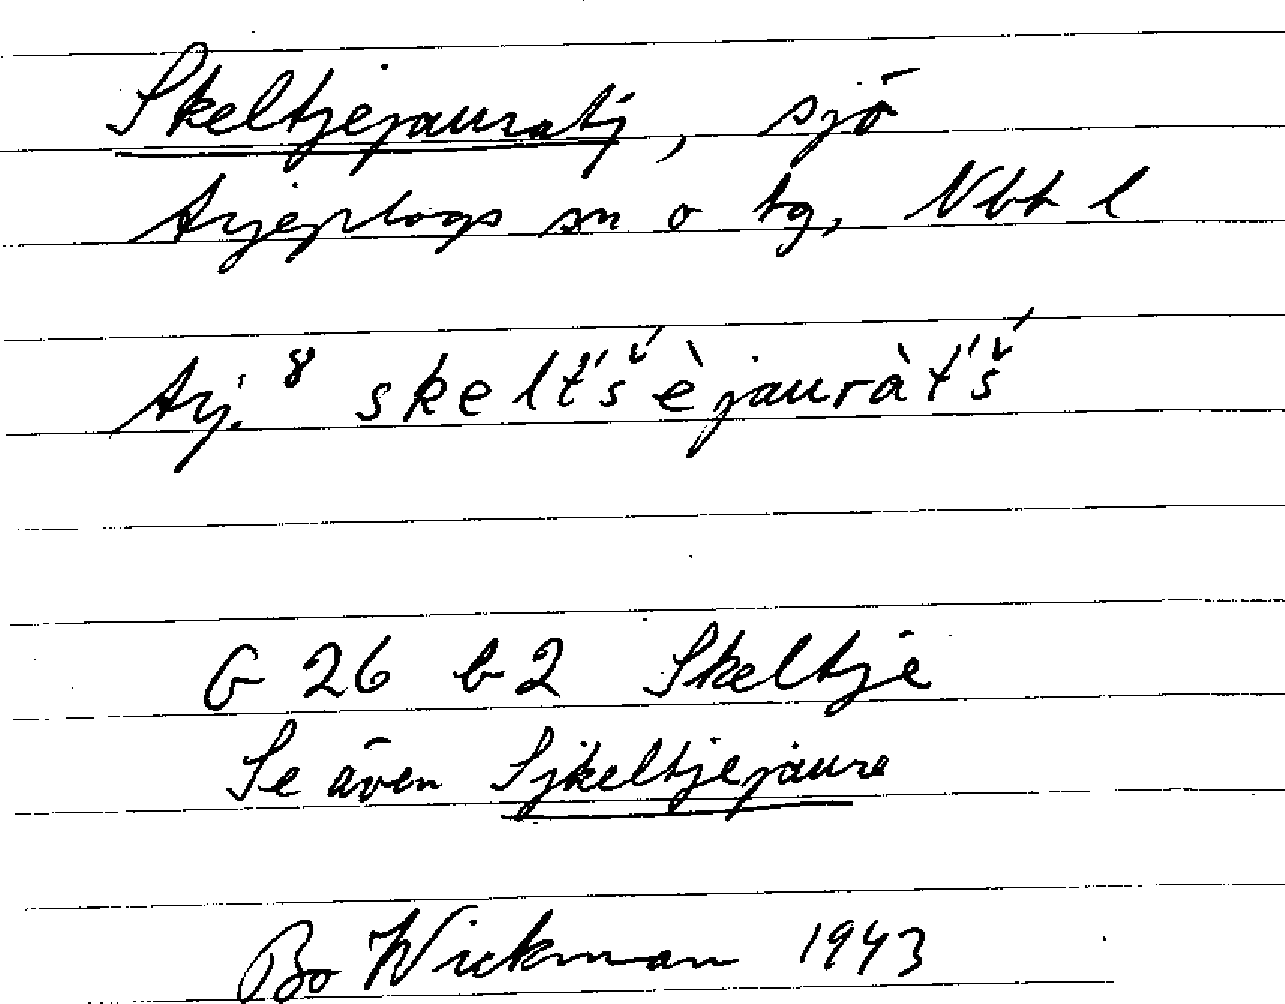 Skeltjejauratj, sjö
Arjeplogs sn o tg, Nbt l
Arj. 8 skelt́'š́èjauràt́'š́
G 26 b 2 Skeltje
Se även Sjkeltjejaure
Bo Wickman 1943